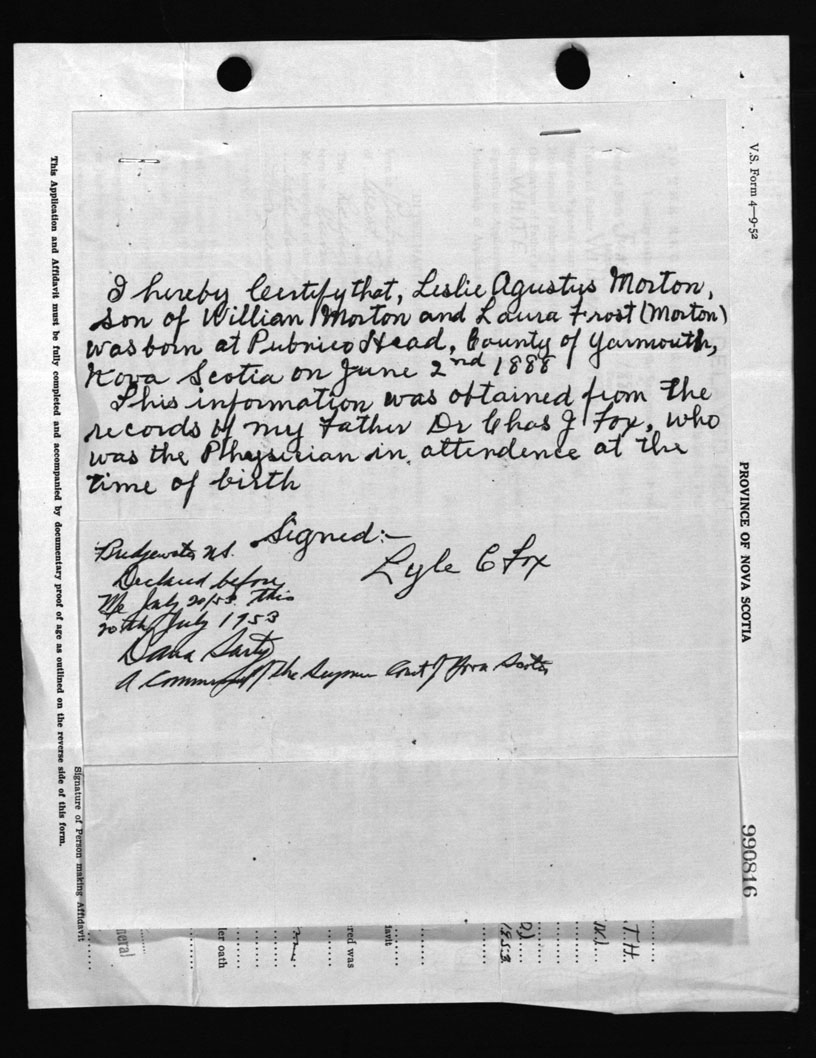 I hereby Certify that, Leslie Agustys Morton,
son of Willian Morton and Laura Frost (Morton)
was born at Pubnico Head, County of Yarmouth,
Nova Scotia on June 2nd 1888
This information was obtained from the
records of my Father Dr Chas J Fox, who
was the Pthysician in attendence at the
time of birth
Signed:-
Lyle C Fox
Bridgewater N.S.
Declared before
Me July 20/53 this
20th July 1953
Dana Sarty
A Commr of the Supreme Court of Nova Scotia
V.S. Form 4—9-52
PROVINCE OF NOVA SCOTIA
990816
This Application and Affidavit must be fully completed and accompanied by documentary proof of age as outlined on the reverse side of this form.
Signature of Person making Affidavit
neral
er oath
red was
davit
1953
T.H.
WHITE